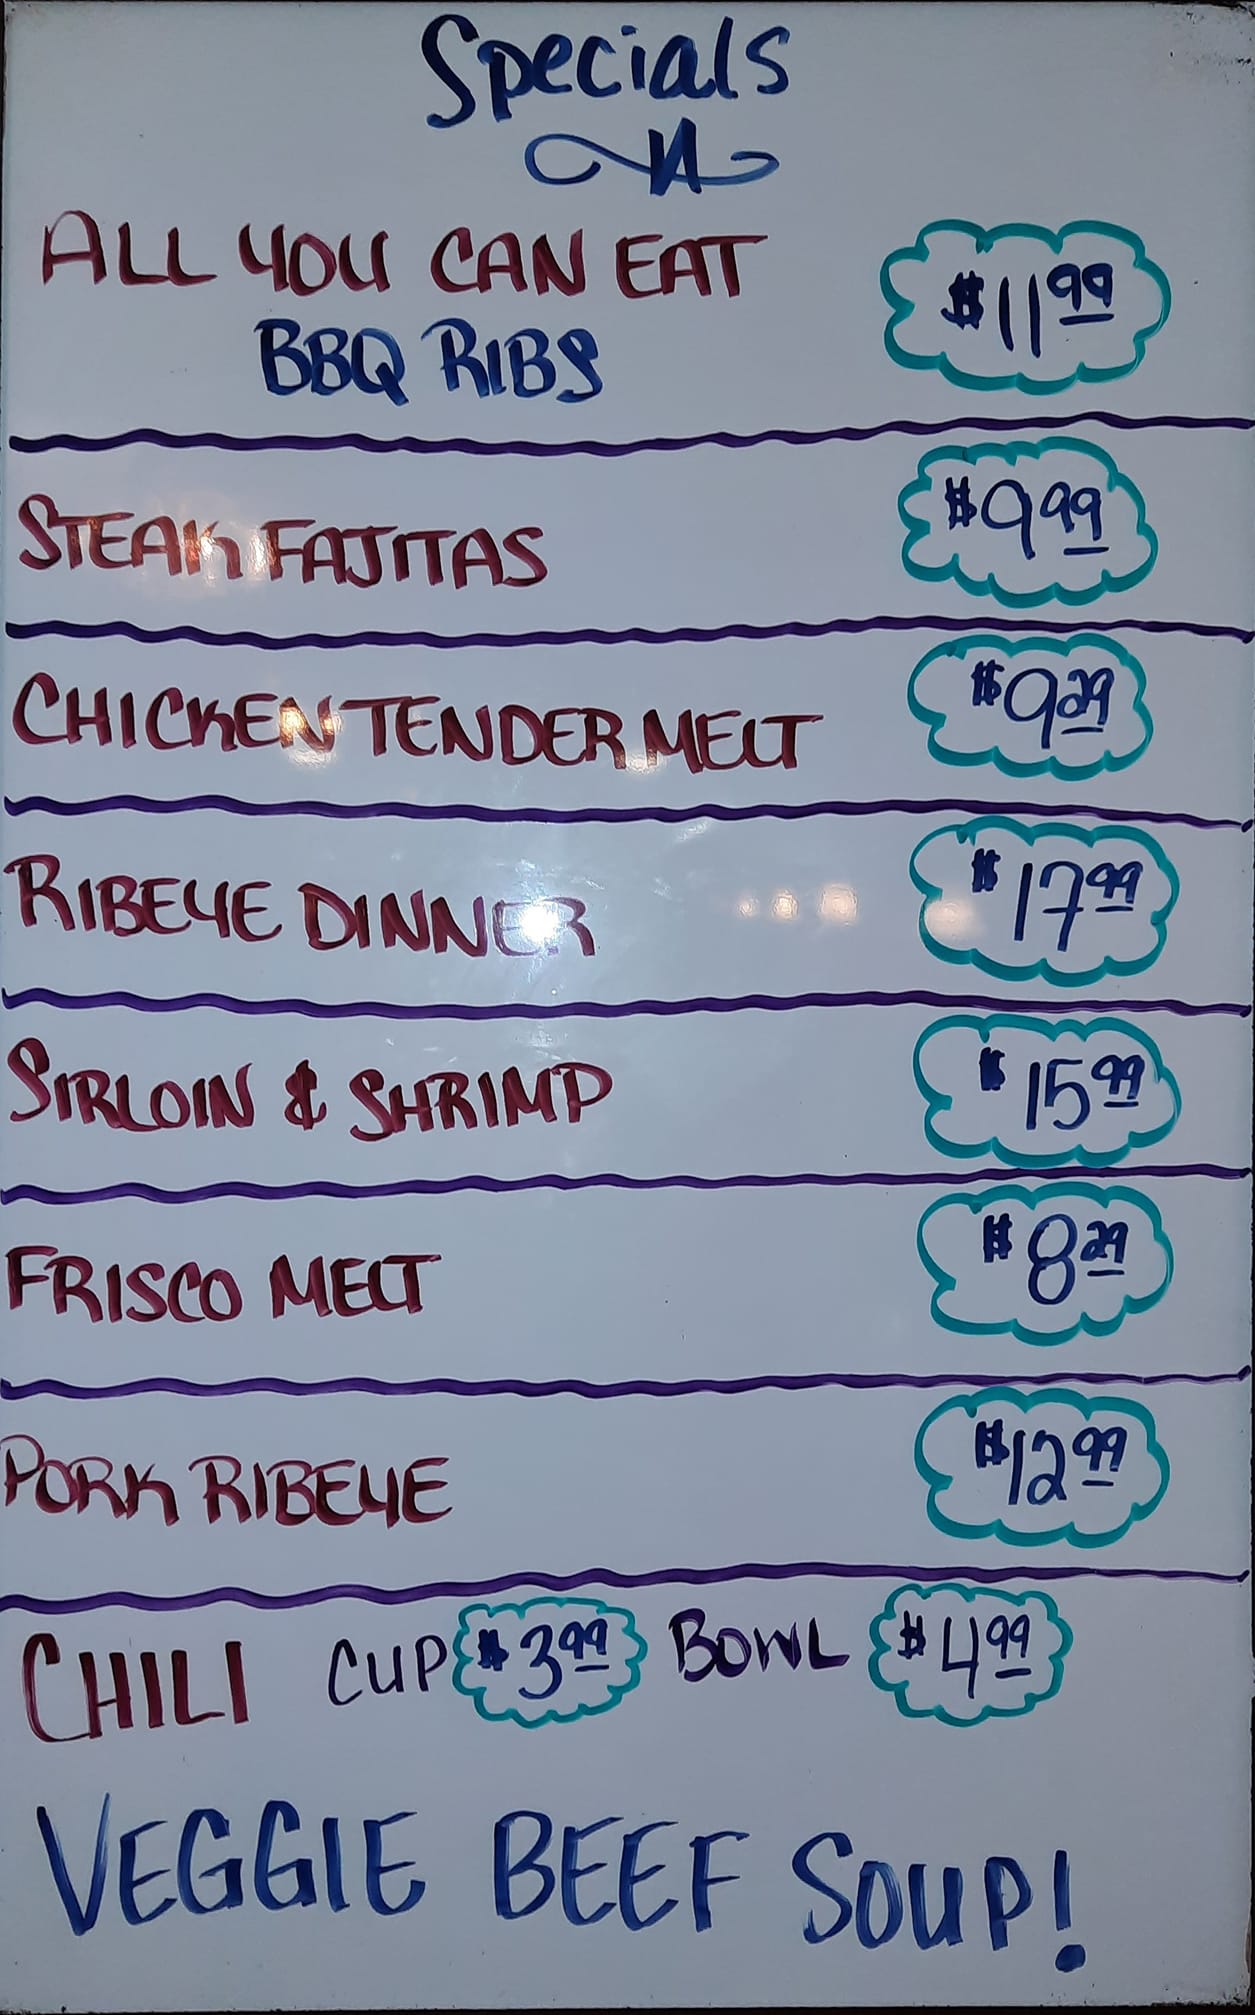 Specials
ALL YOU CAN EAT $11.99
BBQ RIBS
STEAK FAJITAS $9.99
CHICKEN TENDER MELT $9.29
RIBEYE DINNER $17.99
SIRLOIN & SHRIMP $15.99
FRISCO MELT $8.29
PORK RIBEYE $12.99
CHILI CUP $3.99 BOWL $4.99
VEGGIE BEEF SOUP!